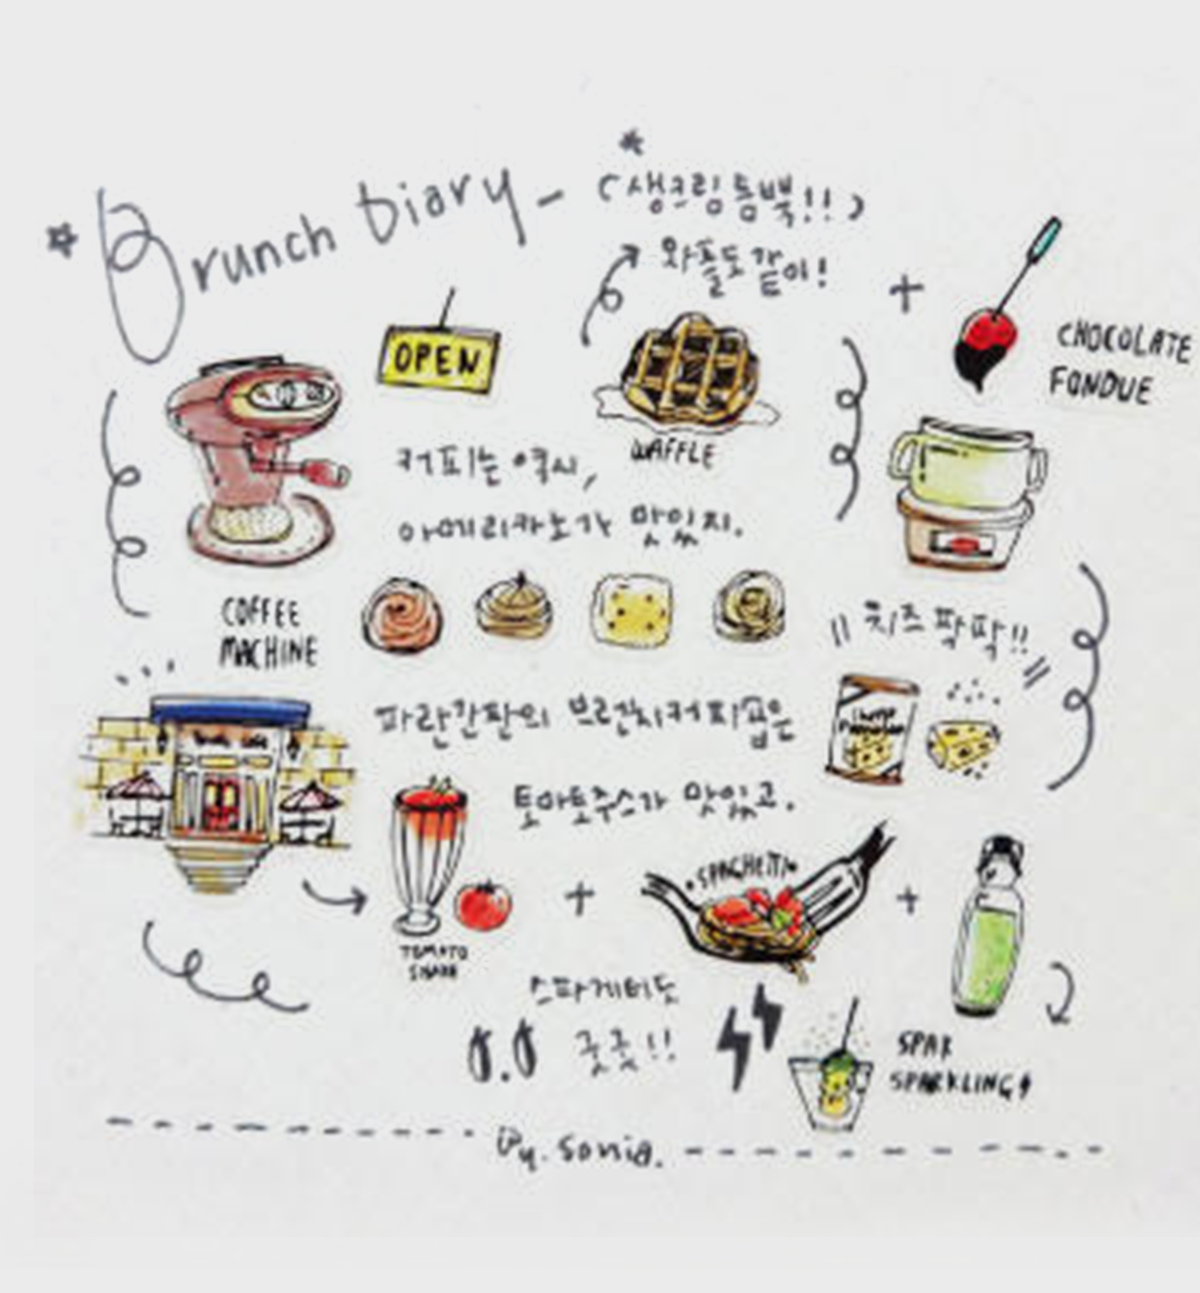 Brunch Diary -
(생크림 듬뿍!!)
와플도 같이!
+
CHOCOLATE
FONDUE
OPEN
WAFFLE
커피는 역시,
아메리카노가 맛있지.
COFFEE
MACHINE
치즈 팍팍!!
파란간판의 브런치커피숍은
토마토주스가 맛있고.
TOMATO
SHAKE
+
SPAGHETTI
+
스파게티도
굿굿!!
SPAR
SPARKLING
By. Sonia.